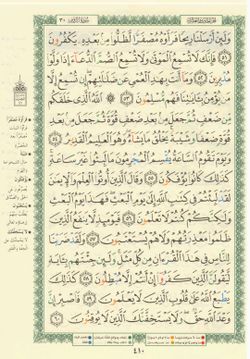 وَلَئِنْ أَرْسَلْنَا رِيحًا فَرَأَوْهُ مُصْفَرًّا لَّظَلُّوا مِنۢ بَعْدِهِۦ يَكْفُرُونَ
﴿٥١﴾ فَإِنَّكَ لَا تُسْمِعُ ٱلْمَوْتَىٰ وَلَا تُسْمِعُ ٱلصُّمَّ ٱلدُّعَآءَ إِذَا وَلَّوْا۟
مُدْبِرِينَ ﴿٥٢﴾ وَمَآ أَنتَ بِهَٰدِ ٱلْعُمْىِ عَن ضَلَٰلَتِهِمْ إِن تُسْمِعُ إِلَّا
مَن يُؤْمِنُ بِـَٔايَٰتِنَا فَهُم مُّسْلِمُونَ ﴿٥٣﴾ ۞ ٱللَّهُ ٱلَّذِى خَلَقَكُم
مِّن ضَعْفٍ ثُمَّ جَعَلَ مِنۢ بَعْدِ ضَعْفٍ قُوَّةً ثُمَّ جَعَلَ مِنۢ بَعْدِ
قُوَّةٍ ضَعْفًا وَشَيْبَةً يَخْلُقُ مَا يَشَآءُ وَهُوَ ٱلْعَلِيمُ ٱلْقَدِيرُ ﴿٥٤﴾
وَيَوْمَ تَقُومُ ٱلسَّاعَةُ يُقْسِمُ ٱلْمُجْرِمُونَ مَا لَبِثُوا۟ غَيْرَ سَاعَةٍ
كَذَٰلِكَ كَانُوا۟ يُؤْفَكُونَ ﴿٥٥﴾ وَقَالَ ٱلَّذِينَ أُوتُوا۟ ٱلْعِلْمَ وَٱلْإِيمَٰنَ
لَقَدْ لَبِثْتُمْ فِى كِتَٰبِ ٱللَّهِ إِلَىٰ يَوْمِ ٱلْبَعْثِ فَهَٰذَا يَوْمُ ٱلْبَعْثِ
وَلَٰكِنَّكُمْ كُنتُمْ لَا تَعْلَمُونَ ﴿٥٦﴾ فَيَوْمَئِذٍ لَّا يَنفَعُ ٱلَّذِينَ
ظَلَمُوا۟ مَعْذِرَتُهُمْ وَلَا هُمْ يُسْتَعْتَبُونَ ﴿٥٧﴾ وَلَقَدْ ضَرَبْنَا
لِلنَّاسِ فِى هَٰذَا ٱلْقُرْءَانِ مِن كُلِّ مَثَلٍ وَلَئِن جِئْتَهُم بِـَٔايَةٍ
لَّيَقُولَنَّ ٱلَّذِينَ كَفَرُوٓا۟ إِنْ أَنتُمْ إِلَّا مُبْطِلُونَ ﴿٥٨﴾ كَذَٰلِكَ
يَطْبَعُ ٱللَّهُ عَلَىٰ قُلُوبِ ٱلَّذِينَ لَا يَعْلَمُونَ ﴿٥٩﴾ فَٱصْبِرْ إِنَّ
وَعْدَ ٱللَّهِ حَقٌّ وَلَا يَسْتَخِفَّنَّكَ ٱلَّذِينَ لَا يُوقِنُونَ ﴿٦٠﴾
٤١٠